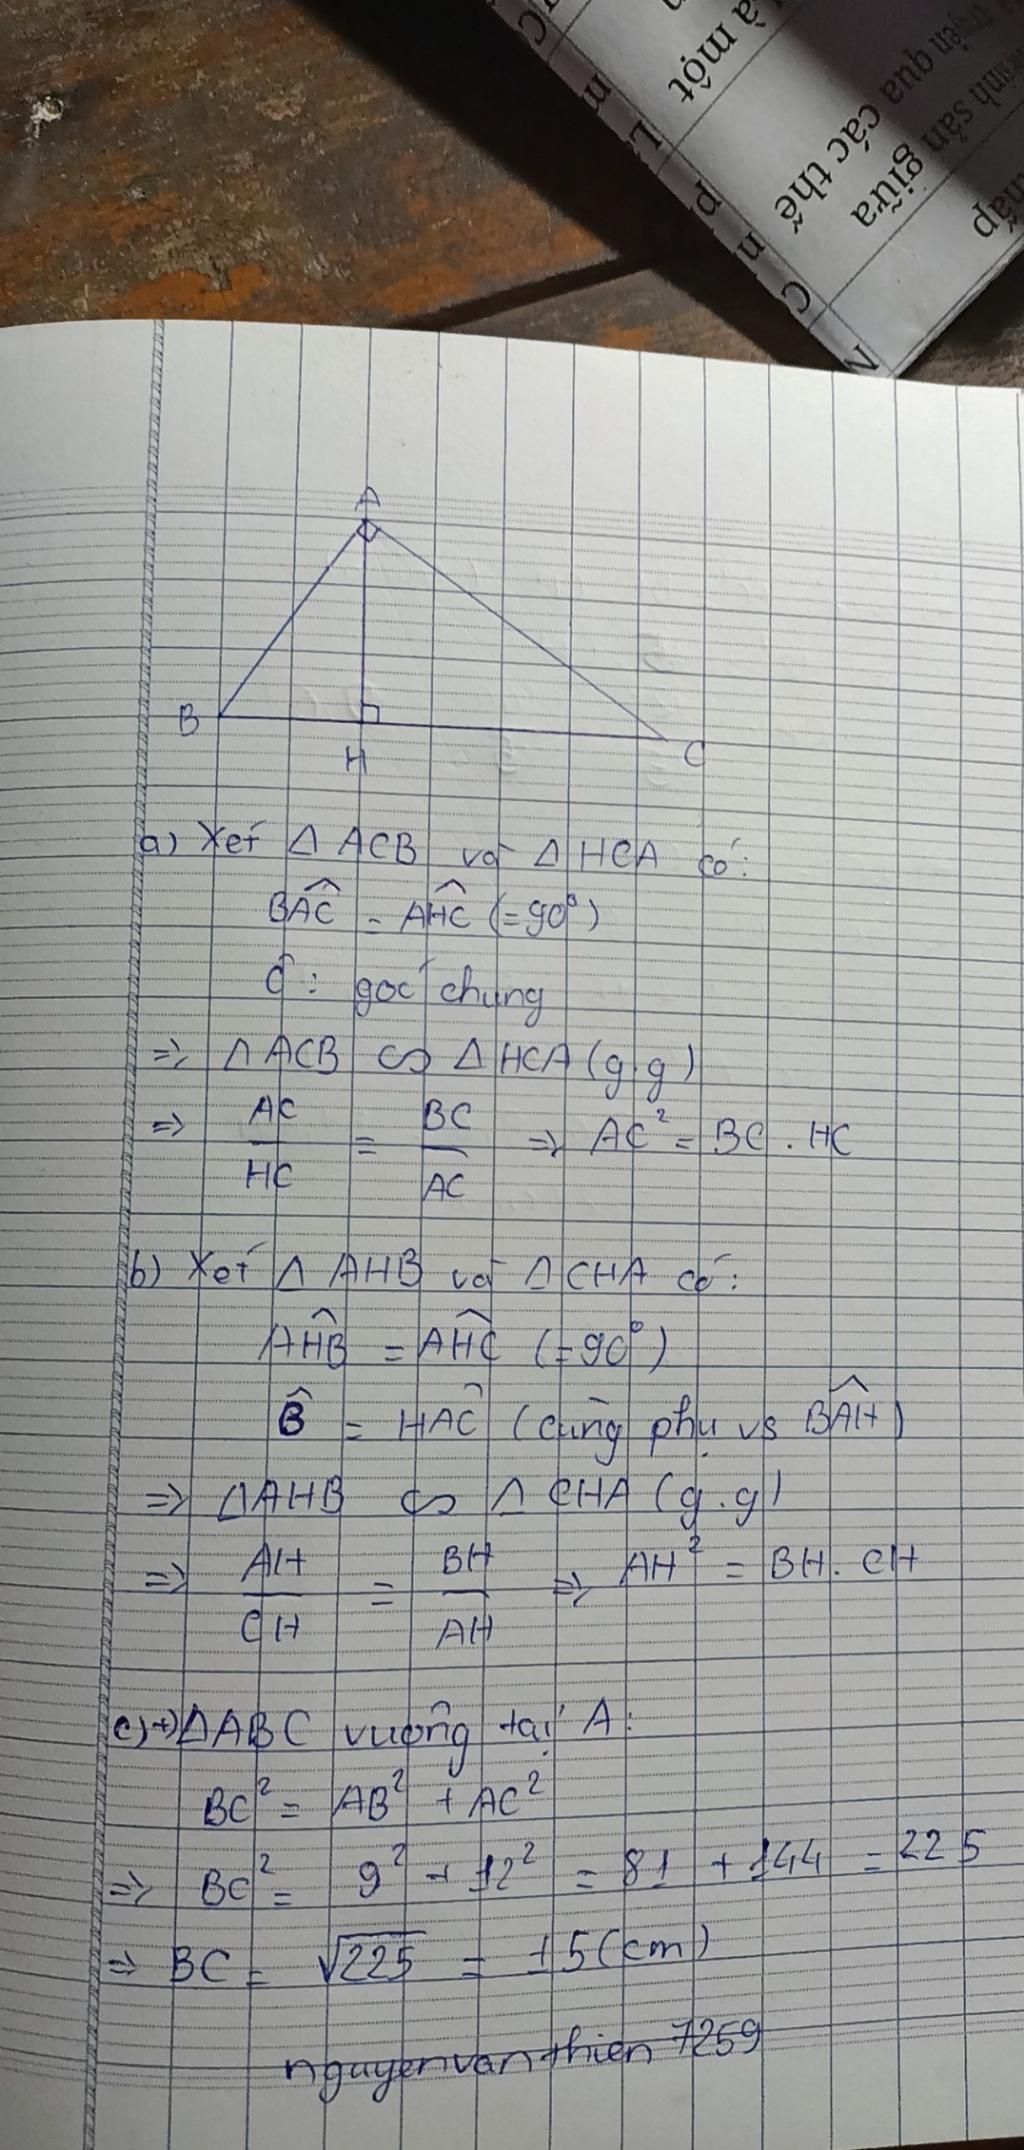 à một
truyền qua các thế
sinh sản giữa
thấp
C
m
L
p
n
C
N
A
B
H
C
a) Xét Δ ACB và Δ HCA có:
BAC^ = AHC^ (=90°)
C^ : góc chung
=> Δ ACB ∽ Δ HCA (g.g)
=> AC/HC = BC/AC => AC² = BC . HC
b) Xét Δ AHB và Δ CHA có:
AHB^ = AHC^ (=90°)
B^ = HAC^ (cùng phụ vs BAH^)
=> Δ AHB ∽ Δ CHA (g.g)
=> AH/CH = BH/AH => AH² = BH. CH
c) +) Δ ABC vuông tại A:
BC² = AB² + AC²
=> BC² = 9² + 12² = 81 + 144 = 225
=> BC = √225 = 15 (cm)
nguyenvanthien 7259